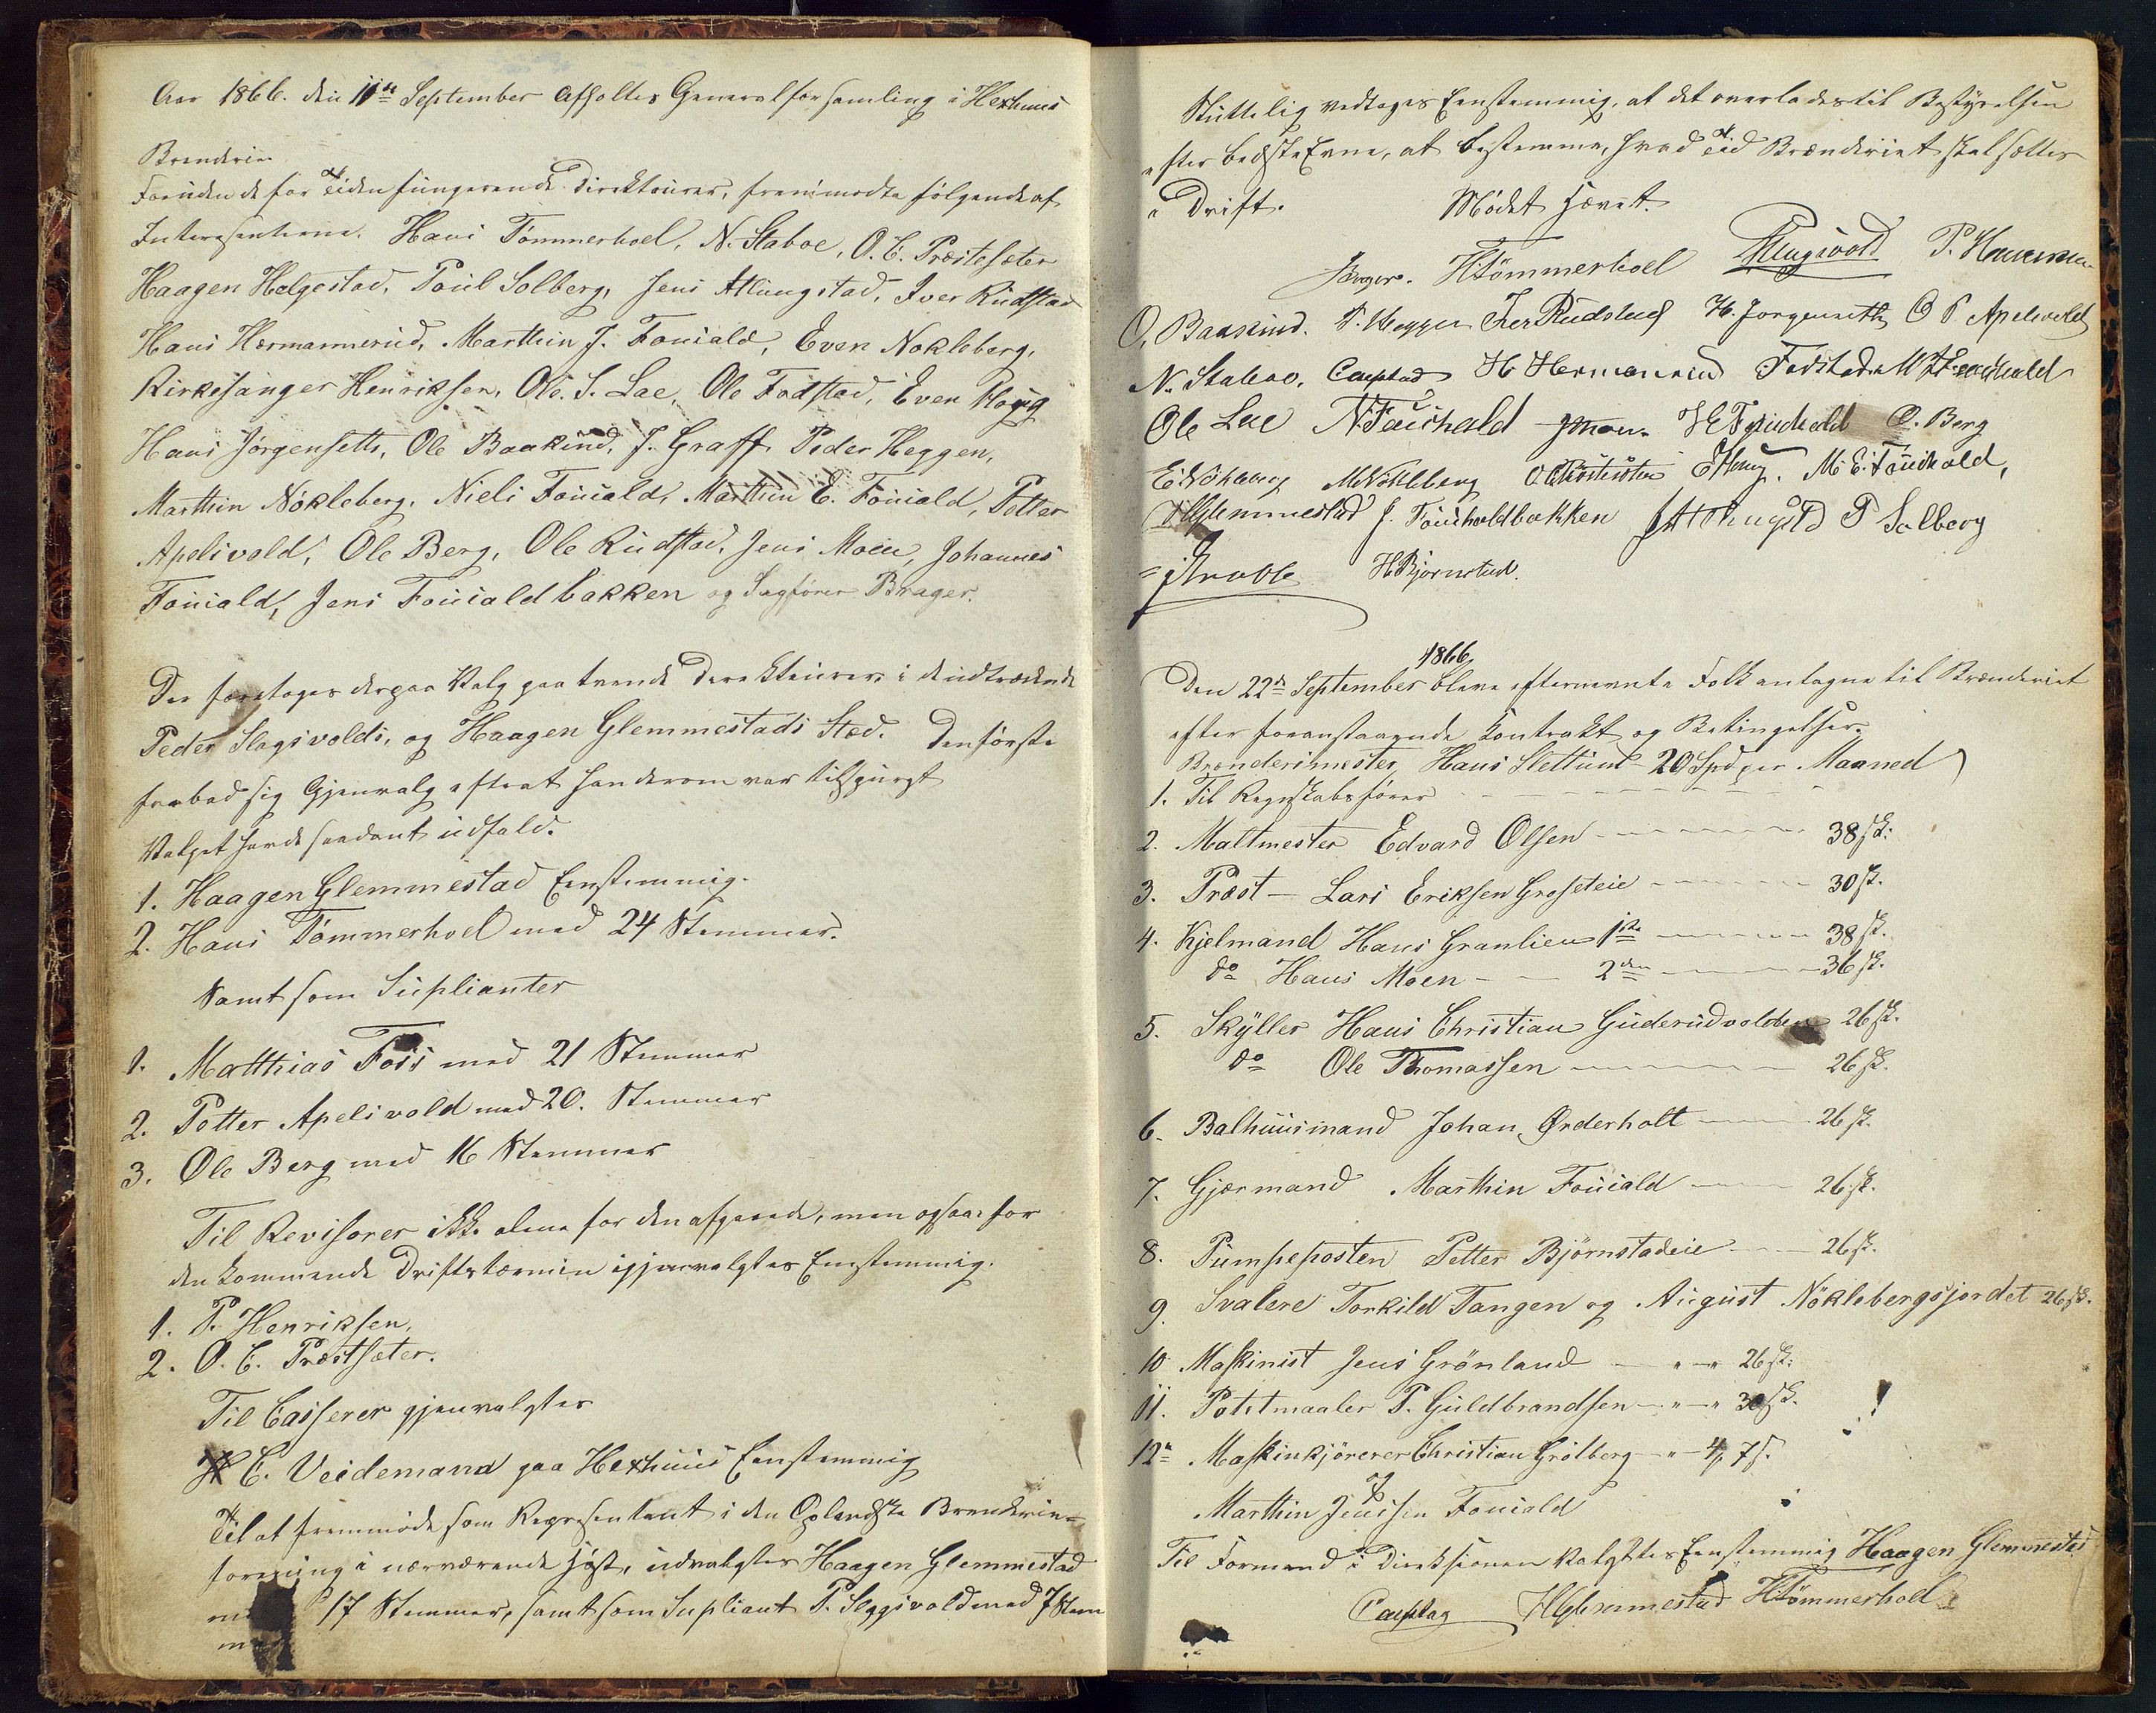 Aar 1866. den 11te September afholdtes Generalforsamling i Hexhuus
Brænderie
Foruden de for Tiden fungerende Direkteurer, fremmødte følgende af
Interesenterne. Hans Tømmerhoel, N. Staboe, O. C. Præstesæter
Haagen Helgestad, Poul Solberg, Jens Atlungstad, Iver Rudstad
Hans Hermannerud, Marthin J. Fouiald, Even Nokleberg,
Kirkesanger Henriksen, Ole. S. Lae, Ole Fodstad, Even Houg
Hans Jørgensetts, Ole Baakind, J. Graff, Peder Heggen,
Marthin Nökleberg, Niels Fouiald, Marthin E. Fouiald, Petter
Apelsvold, Ole Berg, Ole Rudstad, Jens Moen, Johannes
Fouiald, Jens Fouialdbakken og Sagfører Brager.
Der foretoges derpaa Valg paa tvende Direkteurer i de udtrædende
Peder Slagsvolds, og Haagen Glemmestads Sted. Den første
frabad sig Gjenvalg efterat han derom var tilspurgt
Valget havde saadant udfald.
1. Haagen Glemmestad Eenstemmig.
2. Hans Tömmerhoel med 24 Stemmer.
Samt som Suplianter
1. Matthias Foss med 21 Stemmer
2. Petter Apelsvold med 20. Stemmer
3. Ole Berg med 16 Stemmer
Til Revisorer ikke alene for den afgaaede, men ogsaa for
den kommende Driftstermin igjenvalgtes Eenstemmig.
1. P. Henriksen,
2. O. C. Præstsæter.
Til Casserer gjenvalgtes
C. Veidemann paa Hexhuus Eenstemmig
Til at fremmøde som Representant i den Oplandske Brænderie-
forening i nærværende Høst, udvalgtes Haagen Glemmestad
17 Stemmer, samt som Supliant P. Slagsvold med 7 Stem
Sluttelig vedtoges Eenstemmig, at det overlades til Bestyrelsen
efter bedste Evne, at bestemme, hvad Tid Brænderiet skal sættes
i Drift. Mødet hævet.
Brager. H Tömmerhoel P. Slagsvold P. Henriksen
O. Baakind. P. Heggen Iver Rudstad H. Jorgensetts O P. Apelsvold
N. Staboe, H Hermanrud Fodstad
Ole Lae N Fauchald J Moen. O. Berg
M Nökleberg E Houg. M. E. Fauchald,
H Glemmestad J. Fouchaldbakken P Solberg
H Bjørnstad.
1866
Den 22de September bleve efternevnte Folk antagne til Brænderiet
efter foranstaaende Kontrakt og Betingelser.
Brænderimester, Hans Slettund 20 Spd per Maaned
1. Til Regnskabsfører
2. Maltmester Edvard Olsen 38 sk.
3. Præst - Lars Eriksen Groseteie 30 sk.
4. Kjelmand Hans Granlien 1ste 38 sk.
do Hans Moen 2den 36 sk.
5. Skyller Hans Christian Guderudvolden 26 sk.
do Ole Thomassen 26 sk.
6. Balhuusmand Johan Ørderholt 26 sk.
7. Gjærmand Marthin Fouiald 26 sk.
8. Pumpeposten Petter Bjørnstadeie 26 sk.
9. Svalere Torkild Tangen og August Nöklebergsjordet 26 sk.
10 Maskinist Jens Grönland 26 sk.
11. Potetmaaler P. Guldbrandsen 30 sk.
12. Maskinkjörerer Christian Grölberg
og
Marthin Jensen Fouiald
Til Formand i Direksionen valgtes Eenstemmig Haagen Glemmestad
H Glemmestad H Tömmerhoel